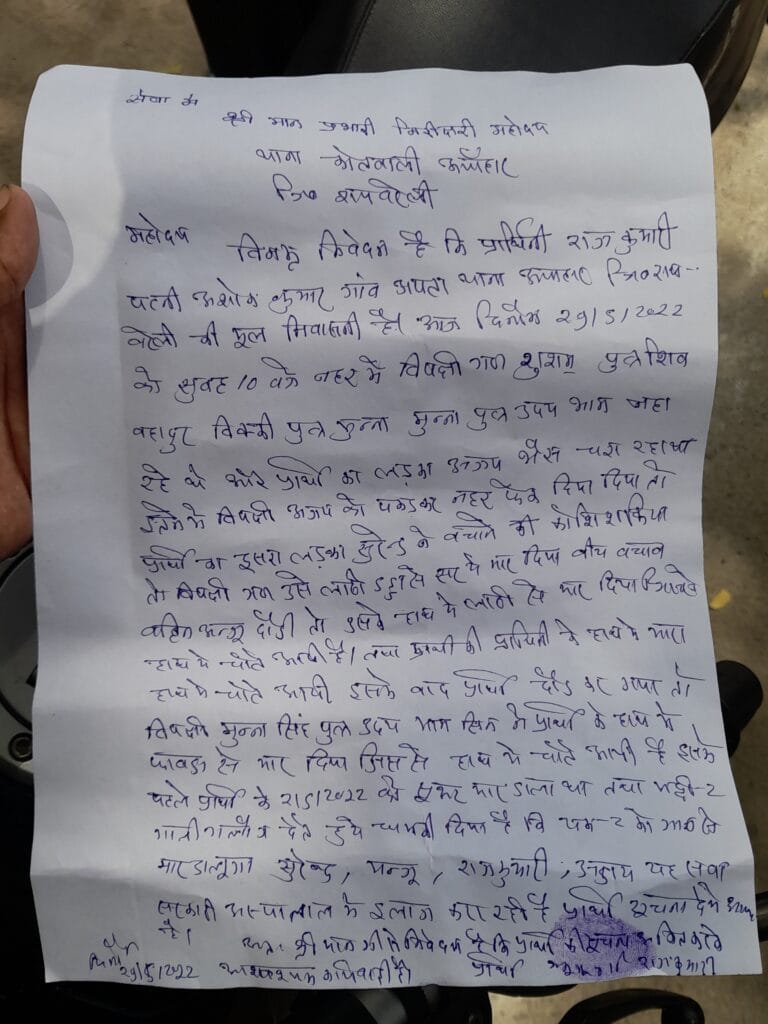 सेवा मे
श्री मान प्रभारी निरीक्षक महोदय
थाना कोतवाली ऊंचाहार
जि० रायबरेली
महोदय विनम्र निवेदन है कि प्रार्थिनी राज कुमारी
पत्नी अशोक कुमार गांव अपटा थाना ऊंचाहार जि० राय-
बरेली की मूल निवासनी है। आज दिनाँक 29/5/2022
को सुबह 10 बजे नहर में विपक्षी गण शुशम पुत्र शिव
बहादुर विक्की पुत्र मुन्ना मुन्ना पुत्र उदय भान नहा
रहे थे और प्रार्थी का लड़का अजय भैस चरा रहा था
इतने मे विपक्षी अजय को पकडकर नहर फेक दिया दिया तो
प्रार्थी का दूसरा लड़का सुरेन्द्र ने बचाने की कोशिश किया
तो विपक्षी गण उसे लाठी डंडा से सर पे मार दिया बीच बचाव
बहिन दौडी तो उसके हाथ पे लाठी से मार दिया जिससे
हाथ मे चोटे आयी है। तथा प्रार्थी की प्रार्थिनी के हाथ मे मारा
हाथ मे चोटे आयी इसके बाद प्रार्थी दौड कर गया तो
विपक्षी मुन्ना सिंह पुत्र उदय भान सिंह ने प्रार्थी के हाथ मे
फावडा से मार दिया जिस से हाथ मे चोटे आयी है इसके
पहले प्रार्थी के 2/5/2022 को सूअर मार डाला था तथा भद्दी-2
गाली गलौज देते हुये धमकी दिया है कि एक-2 को जान से
मार डालूगा सुरेन्द्र, राजकुमारी, अजय यह सब
सरकारी अस्पताल मे इलाज करा रहे है प्रार्थी सूचना देने आया
है।
अतः श्री मान जी से निवेदन है कि प्रार्थी की सूचना
दिनांक 29/5/2022 आवश्यक कार्यवाही प्रार्थी राजकुमारी